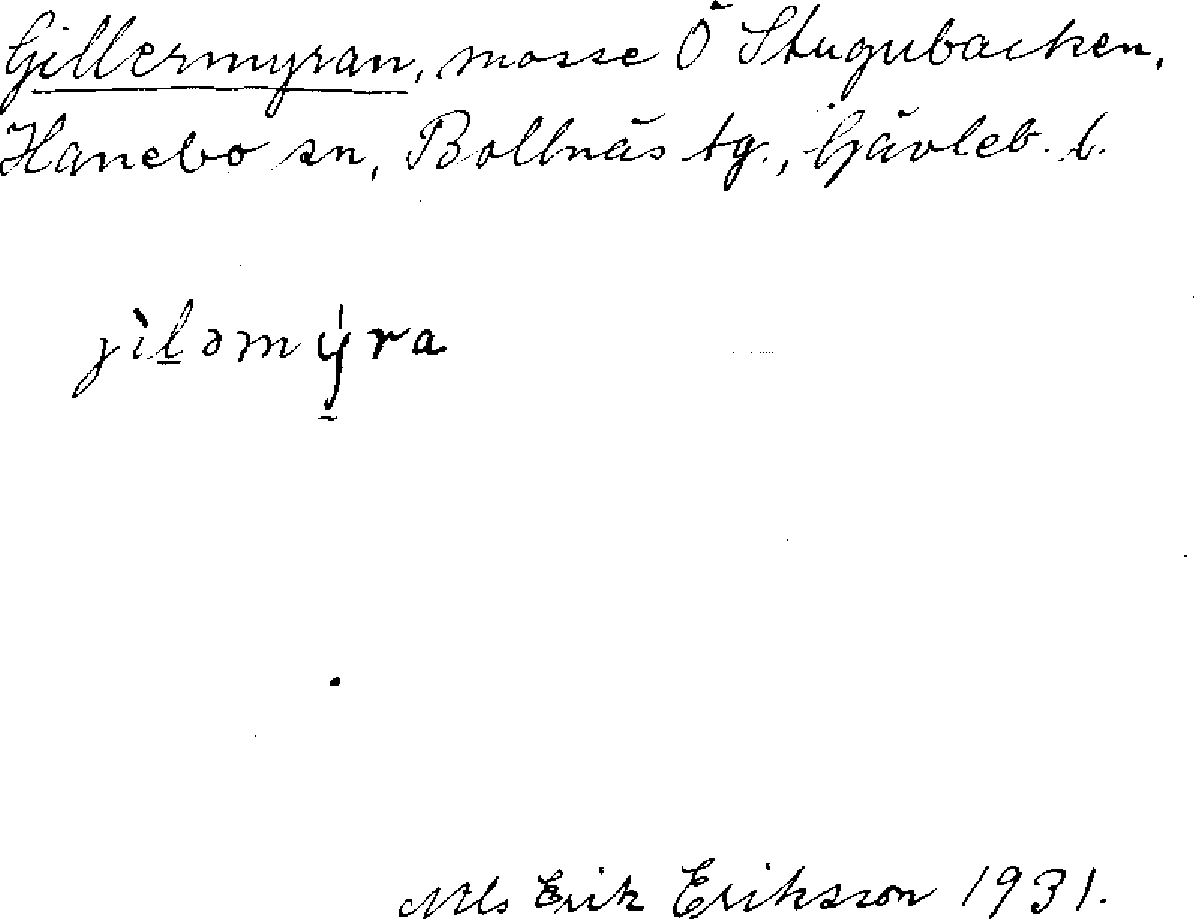 Gillermyran, mosse Ö Stugubacken,
Hanebo sn, Bollnäs tg., Gävleb. l.
jìl̲əmý̠ra
Nils Erik Eriksson 1931.